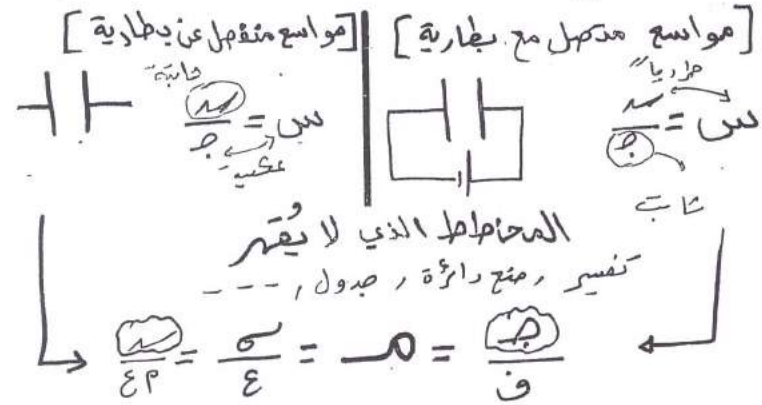 [مواسع متصل مع بطارية]
طردياً
س = سـ / جـ
ثابت
[مواسع منفصل عن بطارية]
ثابتة
س = سـ / جـ
عكسية
المخطط الذي لا يُقهر
تفسير , ضع دائرة , جدول , ---
جـ / ف = مـ = σ / ع = سـ / ع م